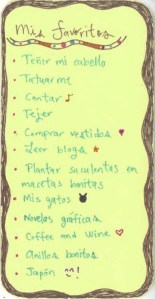 Mis favoritos
• Teñir mi cabello
• Tatuarme
• Cantar
• Tejer
• Comprar vestidos
• Leer blogs
• Plantar suculentas en
macetas bonitas
• Mis gatos
• Novelas gráficas
• Coffee and wine
• Anillos bonitos
• Japón ^^!